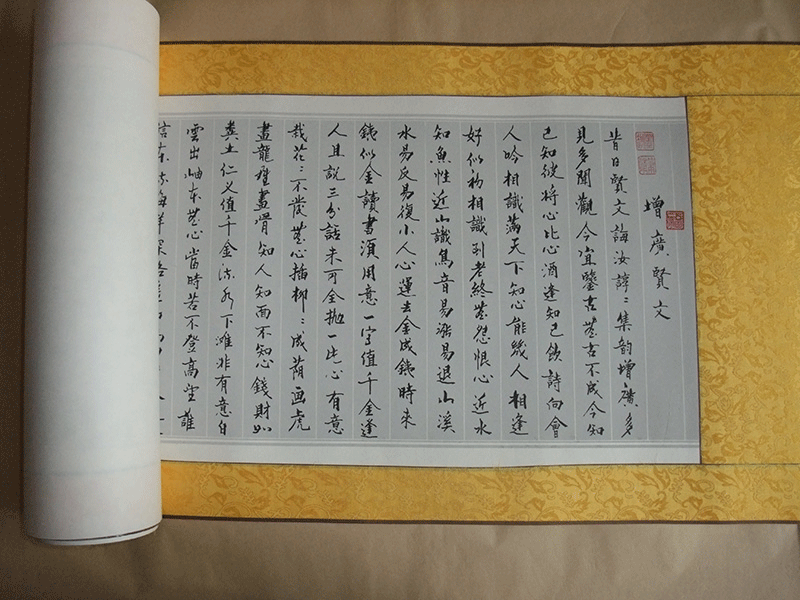 增廣賢文
昔日賢文誨汝諄〻集韵增廣多
見多聞觀今宜鑒古無古不成今知
己知彼將心比心酒逢知己飲詩向會
人吟相識滿天下知心能幾人相逢
好似初相識到老終無怨恨心近水
知魚性近山識鳥音易漲易退山溪
水易反易復小人心運去金成鐵時來
鐵似金讀書須用意一字值千金逢
人且說三分話未可全拋一片心有意
栽花〻不發無心插柳〻成蔭画虎
畫龍難畫骨知人知面不知心錢財如
糞土仁义值千金流水下灘非有意白
雲出岫本無心當時若不登高望誰
信東流海洋深路遙